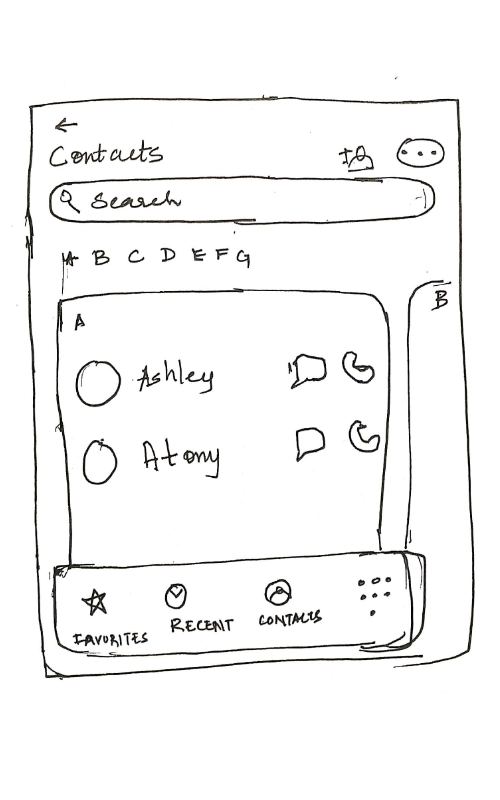 Contacts
Search
A B C D E F G
A
B
Ashley
Atony
FAVORITES RECENT CONTACTS